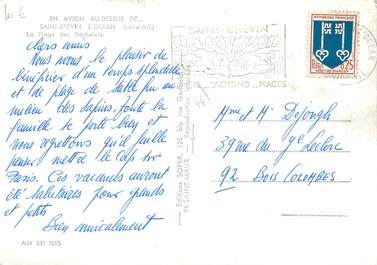 EN AVION AU-DESSUS DE...
SAINT-BREVIN L'OCEAN (Loire-Atl)
La Plage des Rochelets
chers amis
Nous avons le plaisir de
bénéficier d'un temps splendide
et de plage de sable fin au
milieu des sapins, toute la
famille se porte bien et
nous regrettons qu'il faille
penser mettre le cap sur
Paris. Ces vacances auront
été salutaires pour grands
et petits
Bien amicalement
A.II 331 1015
Editions SOFER, 125 bis, rue
94 SAINT-MAUR - Reproduction interdite
SAINT-BREVIN
YACHTING PLAGES
REPUBLIQUE FRANÇAISE
0,25
MONT-DE-MARSAN
Mme et Mr Dejongh
39 rue
92 BOIS COLOMBES